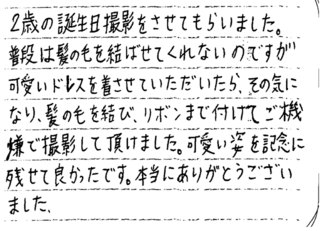 2歳の誕生日撮影をさせてもらいました。
普段は髪の毛を結ばせてくれないのですが
可愛いドレスを着させていただいたら、その気に
なり、髪の毛を結び、リボンまで付けてご機
嫌で撮影して頂けました。可愛い姿を記念に
残せて良かったです。本当にありがとうござい
ました、